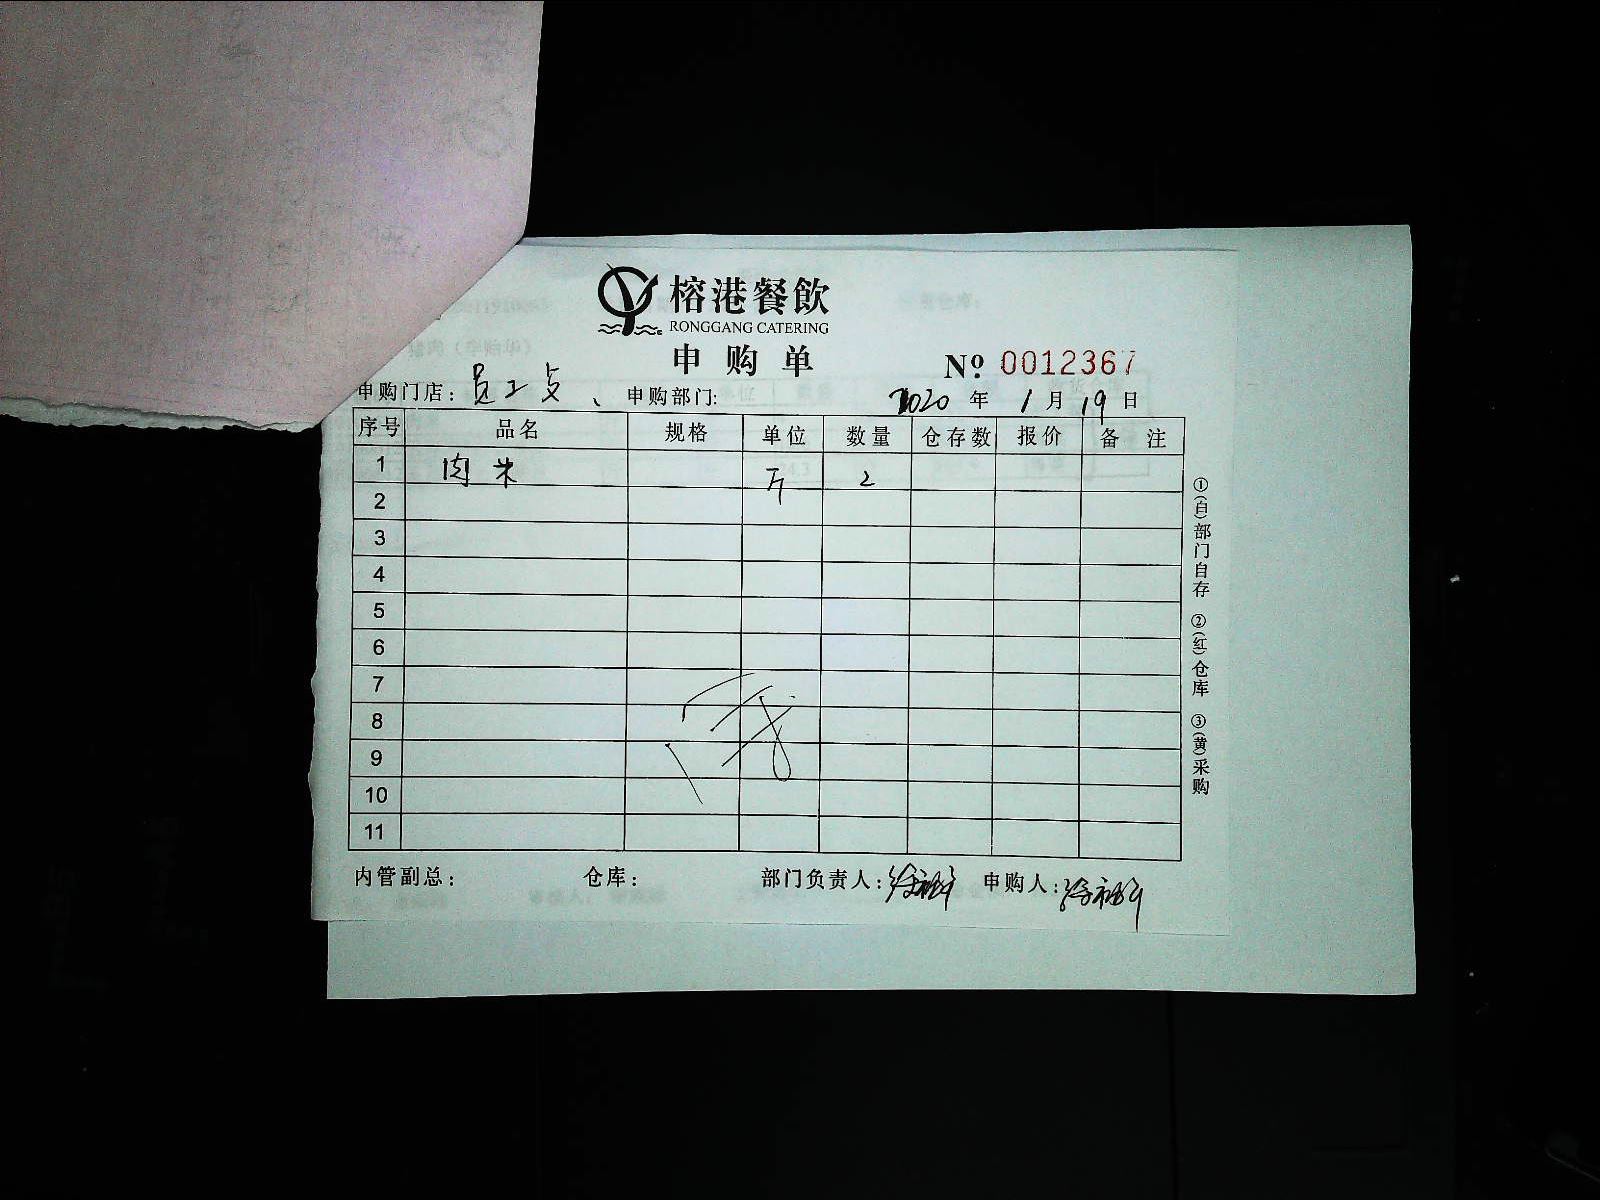 榕港餐飲
RONGGANG CATERING
申购单
№ 0012367
申购门店: 员工 、 申购部门: 2020 年 1 月 19 日
序号 品名 规格 单位 数量 仓存数 报价 备 注
1 肉米 斤 2
2
3
4
5
6
7
8
9
10
11
内管副总: 仓库: 部门负责人: 申购人:
①(白)部门自存 ②(红)仓库 ③(黄)采购